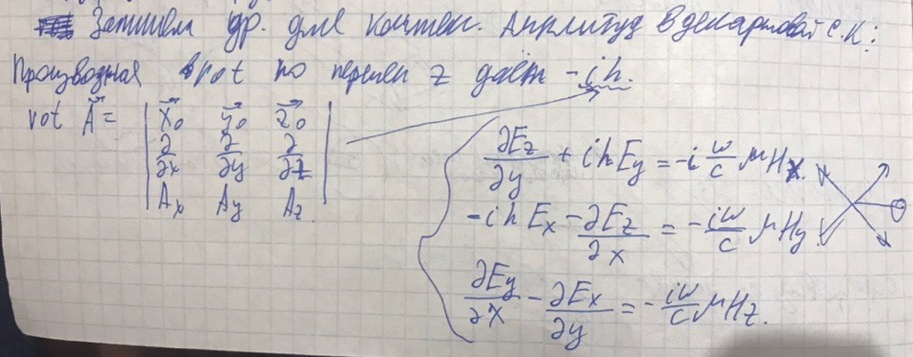 Запишем ур. для компл. Амплитуд в декартовой с.к:
Производная в rot по перемен z даёт -ih.
rot A⃗ = | x⃗₀ y⃗₀ z⃗₀ |
| ∂/∂x ∂/∂y ∂/∂z |
| Aₓ A_y A_z |
∂E_z/∂y + ihE_y = -i ω/c μHₓ.
-ihEₓ - ∂E_z/∂x = -iω/c μH_y.
∂E_y/∂x - ∂Eₓ/∂y = -iω/c μH_z.